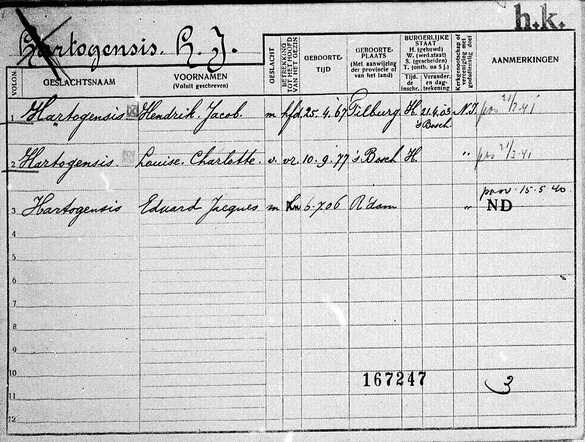 h.k.
Hartogensis. H. J.
VOLGN.
GESLACHTSNAAM
VOORNAMEN
(Voluit geschreven)
GESLACHT
BETREKKING TOT HET HOOFD VAN HET GEZIN
GEBOORTE-
TIJD
GEBOORTE-
PLAATS
(Met aanwijzing der provincie of van het land)
BURGERLIJKE STAAT
H. (gehuwd)
W. (wed. staat)
S. (gescheiden)
T. (ontb. na 5 j.)
Tijd. de inschr.
Verander. en dag-teekening
Kerkgenootschap of vereeniging met godsdienstig doel
AANMERKINGEN
1 Hartogensis Hendrik Jacob. m hfd 25.4.'67 Tilburg H. 21.4.03 N.I.
's Bosch
2 Hartogensis Louise Charlotte. v. vr. 10.9.'77 's Bosch H. "
3 Hartogensis Eduard Jacques m 6.7.06 R'dam " 15.5.40
ND
4
5
6
7
8
9
10 167247 3
11
12